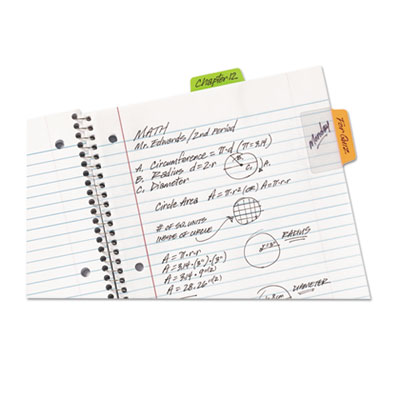 Chapter 12
For Quiz
Monday
MATH
Mr. Edwards / 2nd Period
A. Circumference = π·d (π = 3.14)
B. Radius d = 2·r
C. Diameter
B.
C.
A.
Circle Area A = π·r² (OR) A = π·r·r
# OF SQ. UNITS
INSIDE OF CIRCLE
RADIUS
A = π·r·r
A = 3.14·(3")·(3")
A = 3.14·9
A = 28.26
DIAMETER